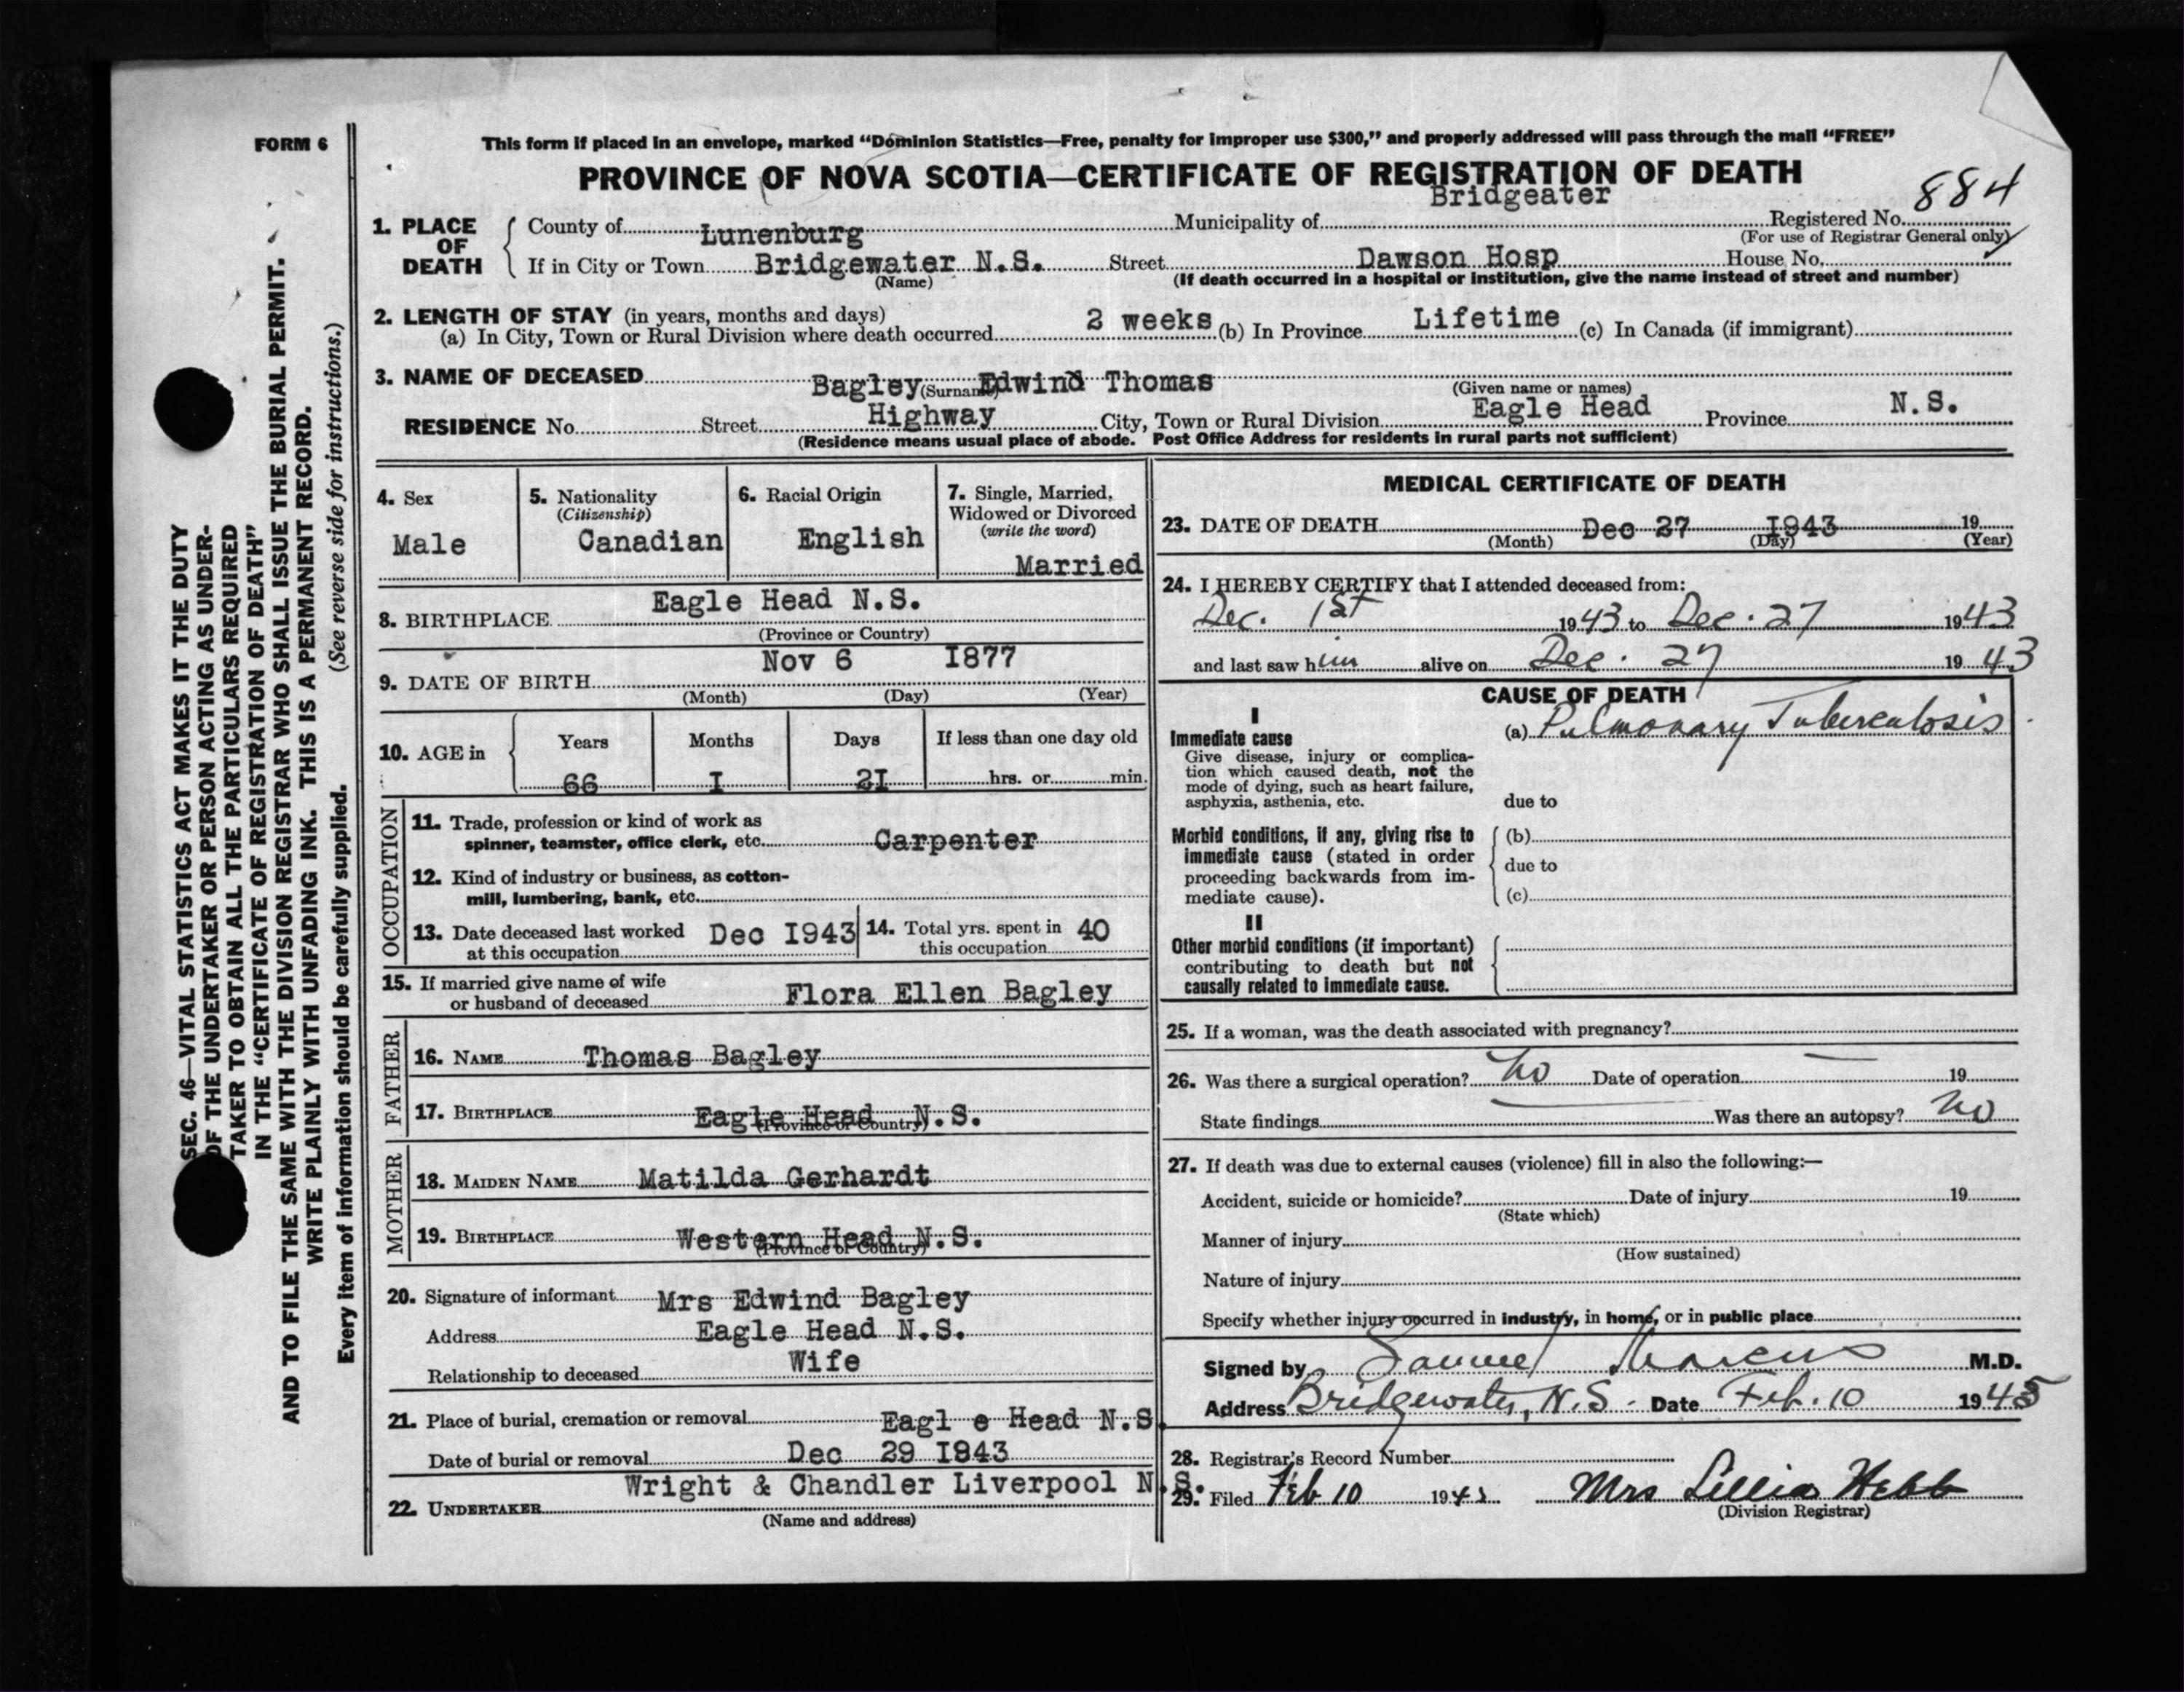 FORM 6
This form if placed in an envelope, marked “Dominion Statistics—Free, penalty for improper use $300,” and properly addressed will pass through the mail “FREE”
PROVINCE OF NOVA SCOTIA—CERTIFICATE OF REGISTRATION OF DEATH
1. PLACE OF DEATH
County of Lunenburg Municipality of Bridgeater Registered No. 884
(For use of Registrar General only)
If in City or Town Bridgewater N.S. Street Dawson Hosp House No.
(Name) (If death occurred in a hospital or institution, give the name instead of street and number)
2. LENGTH OF STAY (in years, months and days)
(a) In City, Town or Rural Division where death occurred 2 weeks (b) In Province Lifetime (c) In Canada (if immigrant)
3. NAME OF DECEASED Bagley (Surname) Edwind Thomas (Given name or names)
RESIDENCE No. Street Highway City, Town or Rural Division Eagle Head Province N.S.
(Residence means usual place of abode. Post Office Address for residents in rural parts not sufficient)
4. Sex
Male
5. Nationality
(Citizenship)
Canadian
6. Racial Origin
English
7. Single, Married,
Widowed or Divorced
(write the word)
Married
8. BIRTHPLACE Eagle Head N.S.
(Province or Country)
9. DATE OF BIRTH Nov 6 I877
(Month) (Day) (Year)
10. AGE in
Years Months Days If less than one day old
66 I 2I hrs. or min.
OCCUPATION
11. Trade, profession or kind of work as
spinner, teamster, office clerk, etc. Carpenter
12. Kind of industry or business, as cotton-
mill, lumbering, bank, etc.
13. Date deceased last worked
at this occupation Dec I943
14. Total yrs. spent in
this occupation 40
15. If married give name of wife
or husband of deceased Flora Ellen Bagley
FATHER
16. NAME Thomas Bagley
17. BIRTHPLACE Eagle Head N.S.
(Province or Country)
MOTHER
18. MAIDEN NAME Matilda Gerhardt
19. BIRTHPLACE Western Head N.S.
(Province or Country)
20. Signature of informant Mrs Edwind Bagley
Address Eagle Head N.S.
Relationship to deceased Wife
21. Place of burial, cremation or removal Eagl e Head N.S.
Date of burial or removal Dec 29 I943
22. UNDERTAKER Wright & Chandler Liverpool N.S.
(Name and address)
MEDICAL CERTIFICATE OF DEATH
23. DATE OF DEATH Dec 27 I943 19
(Month) (Day) (Year)
24. I HEREBY CERTIFY that I attended deceased from:
Dec. 1st 1943 to Dec. 27 1943
and last saw him alive on Dec. 27 1943
CAUSE OF DEATH
I
Immediate cause
Give disease, injury or complica-
tion which caused death, not the
mode of dying, such as heart failure,
asphyxia, asthenia, etc.
(a) Pulmonary Tuberculosis
due to
Morbid conditions, if any, giving rise to
immediate cause (stated in order
proceeding backwards from im-
mediate cause).
(b)
due to
(c)
II
Other morbid conditions (if important)
contributing to death but not
causally related to immediate cause.
25. If a woman, was the death associated with pregnancy?
26. Was there a surgical operation? No Date of operation — 19
State findings Was there an autopsy? No
27. If death was due to external causes (violence) fill in also the following:—
Accident, suicide or homicide? Date of injury 19
(State which)
Manner of injury
(How sustained)
Nature of injury
Specify whether injury occurred in industry, in home, or in public place
Signed by Samuel Marcus M.D.
Address Bridgewater, N.S. Date Feb. 10 1945
28. Registrar's Record Number
29. Filed Feb 10 1945 Mrs Lillia Hebb
(Division Registrar)
SEC. 46—VITAL STATISTICS ACT MAKES IT THE DUTY
OF THE UNDERTAKER OR PERSON ACTING AS UNDER-
TAKER TO OBTAIN ALL THE PARTICULARS REQUIRED
IN THE “CERTIFICATE OF REGISTRATION OF DEATH”
AND TO FILE THE SAME WITH THE DIVISION REGISTRAR WHO SHALL ISSUE THE BURIAL PERMIT.
WRITE PLAINLY WITH UNFADING INK. THIS IS A PERMANENT RECORD.
Every item of information should be carefully supplied. (See reverse side for instructions.)